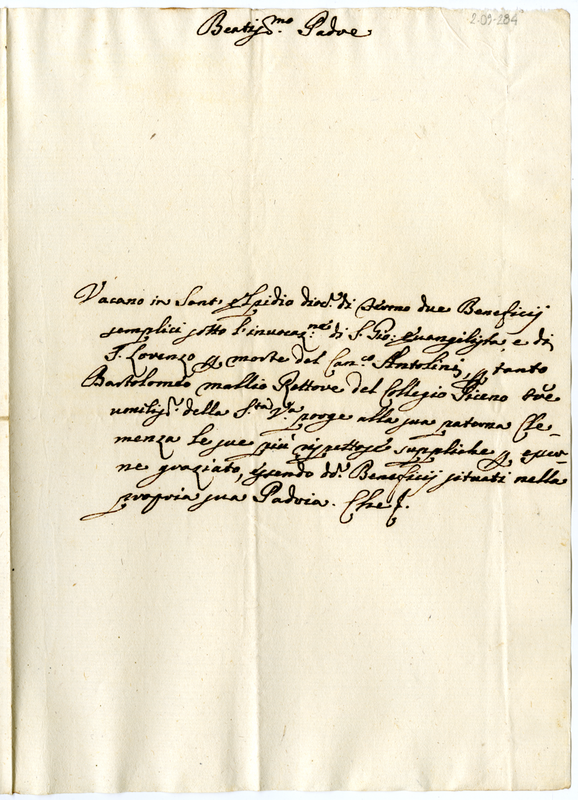 Beatiss.mo Padre
2-09-284
Vacano in Sant' Elpidio dioc. di Fermo due Beneficij
semplici sotto l'invocaz.ne di S. Gio: Evangelista, e di
S. Lorenzo p morte del Can.co Antolini, p tanto
Bartolomeo mallio Rettore del Collegio Piceno Ore
umiliss. della S.tà V.a porge alla sua paterna Cle-
menza le sue più rispettose suppliche p esser-
ne graziato, essendo dd. Beneficij situati nella
propria sua Padria. Che &.